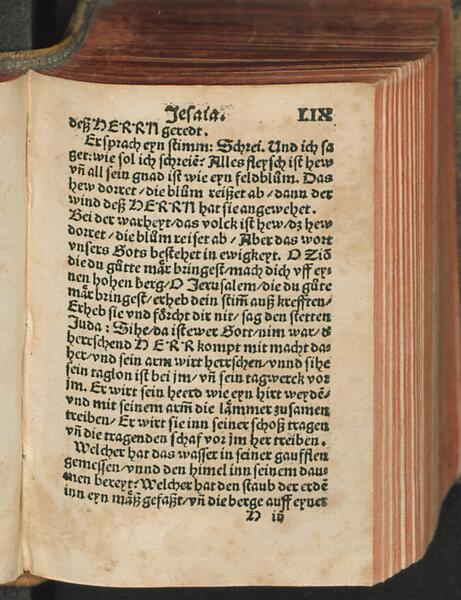 Jesaia. LIX
deß HERRN geredt.
Er sprach eyn stimm: Schrei. Und ich sa
get: wie sol ich schreiē? Alles fleysch ist hew
vñ all sein gnad ist wie eyn feldblům. Das
hew dorret / die blům reißet ab / dann der
wind deß HERRN hat sie angewehet.
Bei der warheyt / das volck ist hew / dz hew
dorret / die blům reiset ab / Aber das wort
vnsers Gots bestehet in ewigkeyt. O Ziō
die du gůtte mär bringest / mach dich vff ey-
nen hohen berg / O Jerusalem / die du gůte
mär bringest / erheb dein stiṁ auß krefften /
Erheb sie vnd förcht dir nit / sag den stetten
Juda : Sihe / da ist ewer Gott / nim war / d
herrschend HERR kompt mit macht da-
her / vnd sein arm wirt herrschen / vnnd sihe
sein taglon ist bei jm / vñ sein tagwerck vor
jm. Er wirt sein heerd wie eyn hirt weydē /
vnd mit seinem arm̄ die lämmer zusamen
treiben / Er wirt sie inn seiner schoß tragen
vñ die tragenden schaf vor jm her treiben.
Welcher hat das wasser in seiner gaufflen
gemessen / vnnd den himel inn seinem dau-
men bereyt? Welcher hat den staub der erdē
inn eyn mäß gefaßt / vñ die berge auff eyner
H iij